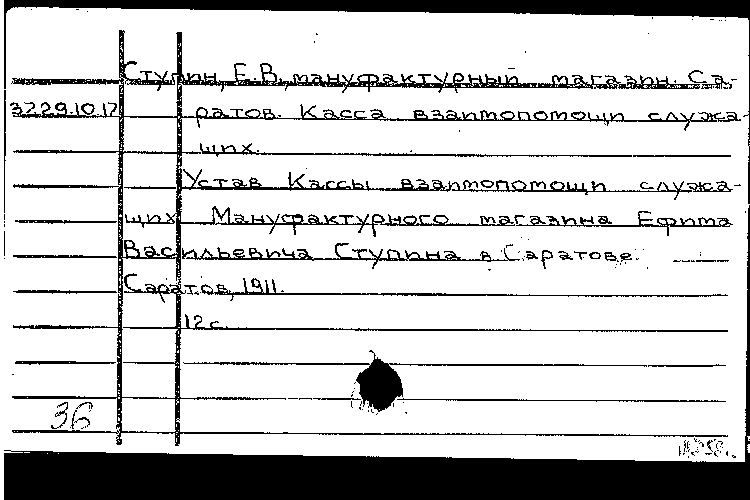 Ступин, Е.В., мануфактурный магазин. Са-
3229.10.17 ратов. Касса взаимопомощи служа-
щих.
Устав Кассы взаимопомощи служа-
щих Мануфактурного магазина Ефима
Васильевича Ступина в Саратове.
Саратов, 1911.
12 с.
36